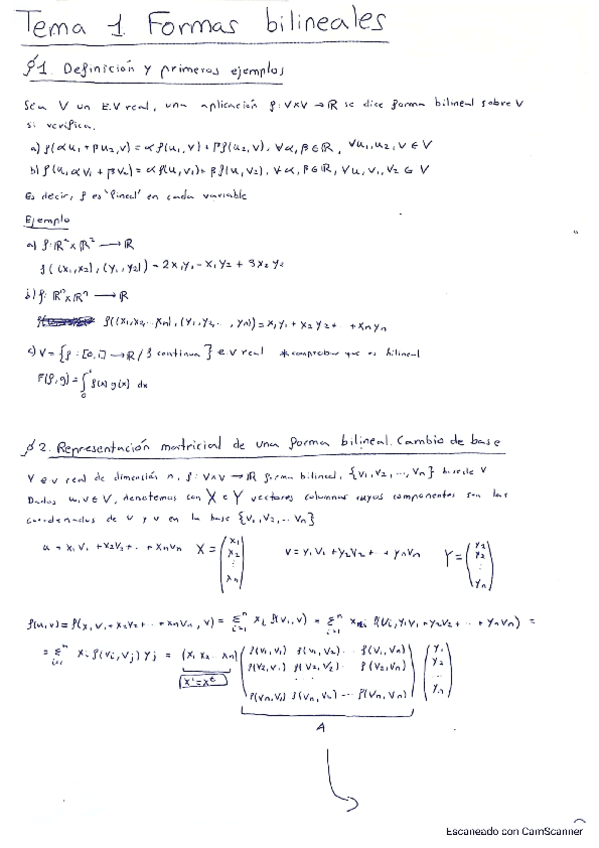 Tema 1. Formas bilineales
§1. Definición y primeros ejemplos
Sea V un E.V real, una aplicación f: V×V → ℝ se dice forma bilineal sobre V
si verifica.
a) f(αu₁ + βu₂, v) = αf(u₁, v) + βf(u₂, v), ∀α, β ∈ ℝ, ∀u₁, u₂, v ∈ V
b) f(u, αv₁ + βv₂) = αf(u, v₁) + βf(u, v₂), ∀α, β ∈ ℝ, ∀u, v₁, v₂ ∈ V
Es decir, f es 'lineal' en cada variable
Ejemplo
a) f: ℝ² × ℝ² → ℝ
f((x₁, x₂), (y₁, y₂)) = 2x₁y₁ - x₁y₂ + 3x₂y₂
b) f: ℝⁿ × ℝⁿ → ℝ
f((x₁, x₂, ... xₙ), (y₁, y₂, ..., yₙ)) = x₁y₁ + x₂y₂ + ... + xₙyₙ
c) V = {f: [0, 1] → ℝ / f continua} e.v real *comprobar que es bilineal
F(f, g) = ∫₀¹ f(x) g(x) dx
§2. Representación matricial de una forma bilineal. Cambio de base
V e.v real de dimensión n, f: V×V → ℝ forma bilineal, {v₁, v₂, ..., vₙ} base de V
Dados u, v ∈ V, denotemos con X e Y vectores columnas cuyas componentes son las
coordenadas de u y v en la base {v₁, v₂, ... vₙ}
u = x₁v₁ + x₂v₂ + ... + xₙvₙ X = (x₁ x₂ ⋮ xₙ) v = y₁v₁ + y₂v₂ + ... + yₙvₙ Y = (y₁ y₂ ⋮ yₙ)
f(u, v) = f(x₁v₁ + x₂v₂ + ... + xₙvₙ, v) = Σⁿᵢ₌₁ xᵢ f(vᵢ, v) = Σⁿᵢ₌₁ xᵢ f(vᵢ, y₁v₁ + y₂v₂ + ... + yₙvₙ) =
= Σⁿᵢ₌₁ xᵢ f(vᵢ, vⱼ) yⱼ = (x₁ x₂ ... xₙ) (f(v₁, v₁) f(v₁, v₂) ... f(v₁, vₙ) (y₁
f(v₂, v₁) f(v₂, v₂) ... f(v₂, vₙ) y₂
X' = Xᵗ ... ...
f(vₙ, v₁) f(vₙ, v₂) ... f(vₙ, vₙ)) yₙ)
A
Escaneado con CamScanner